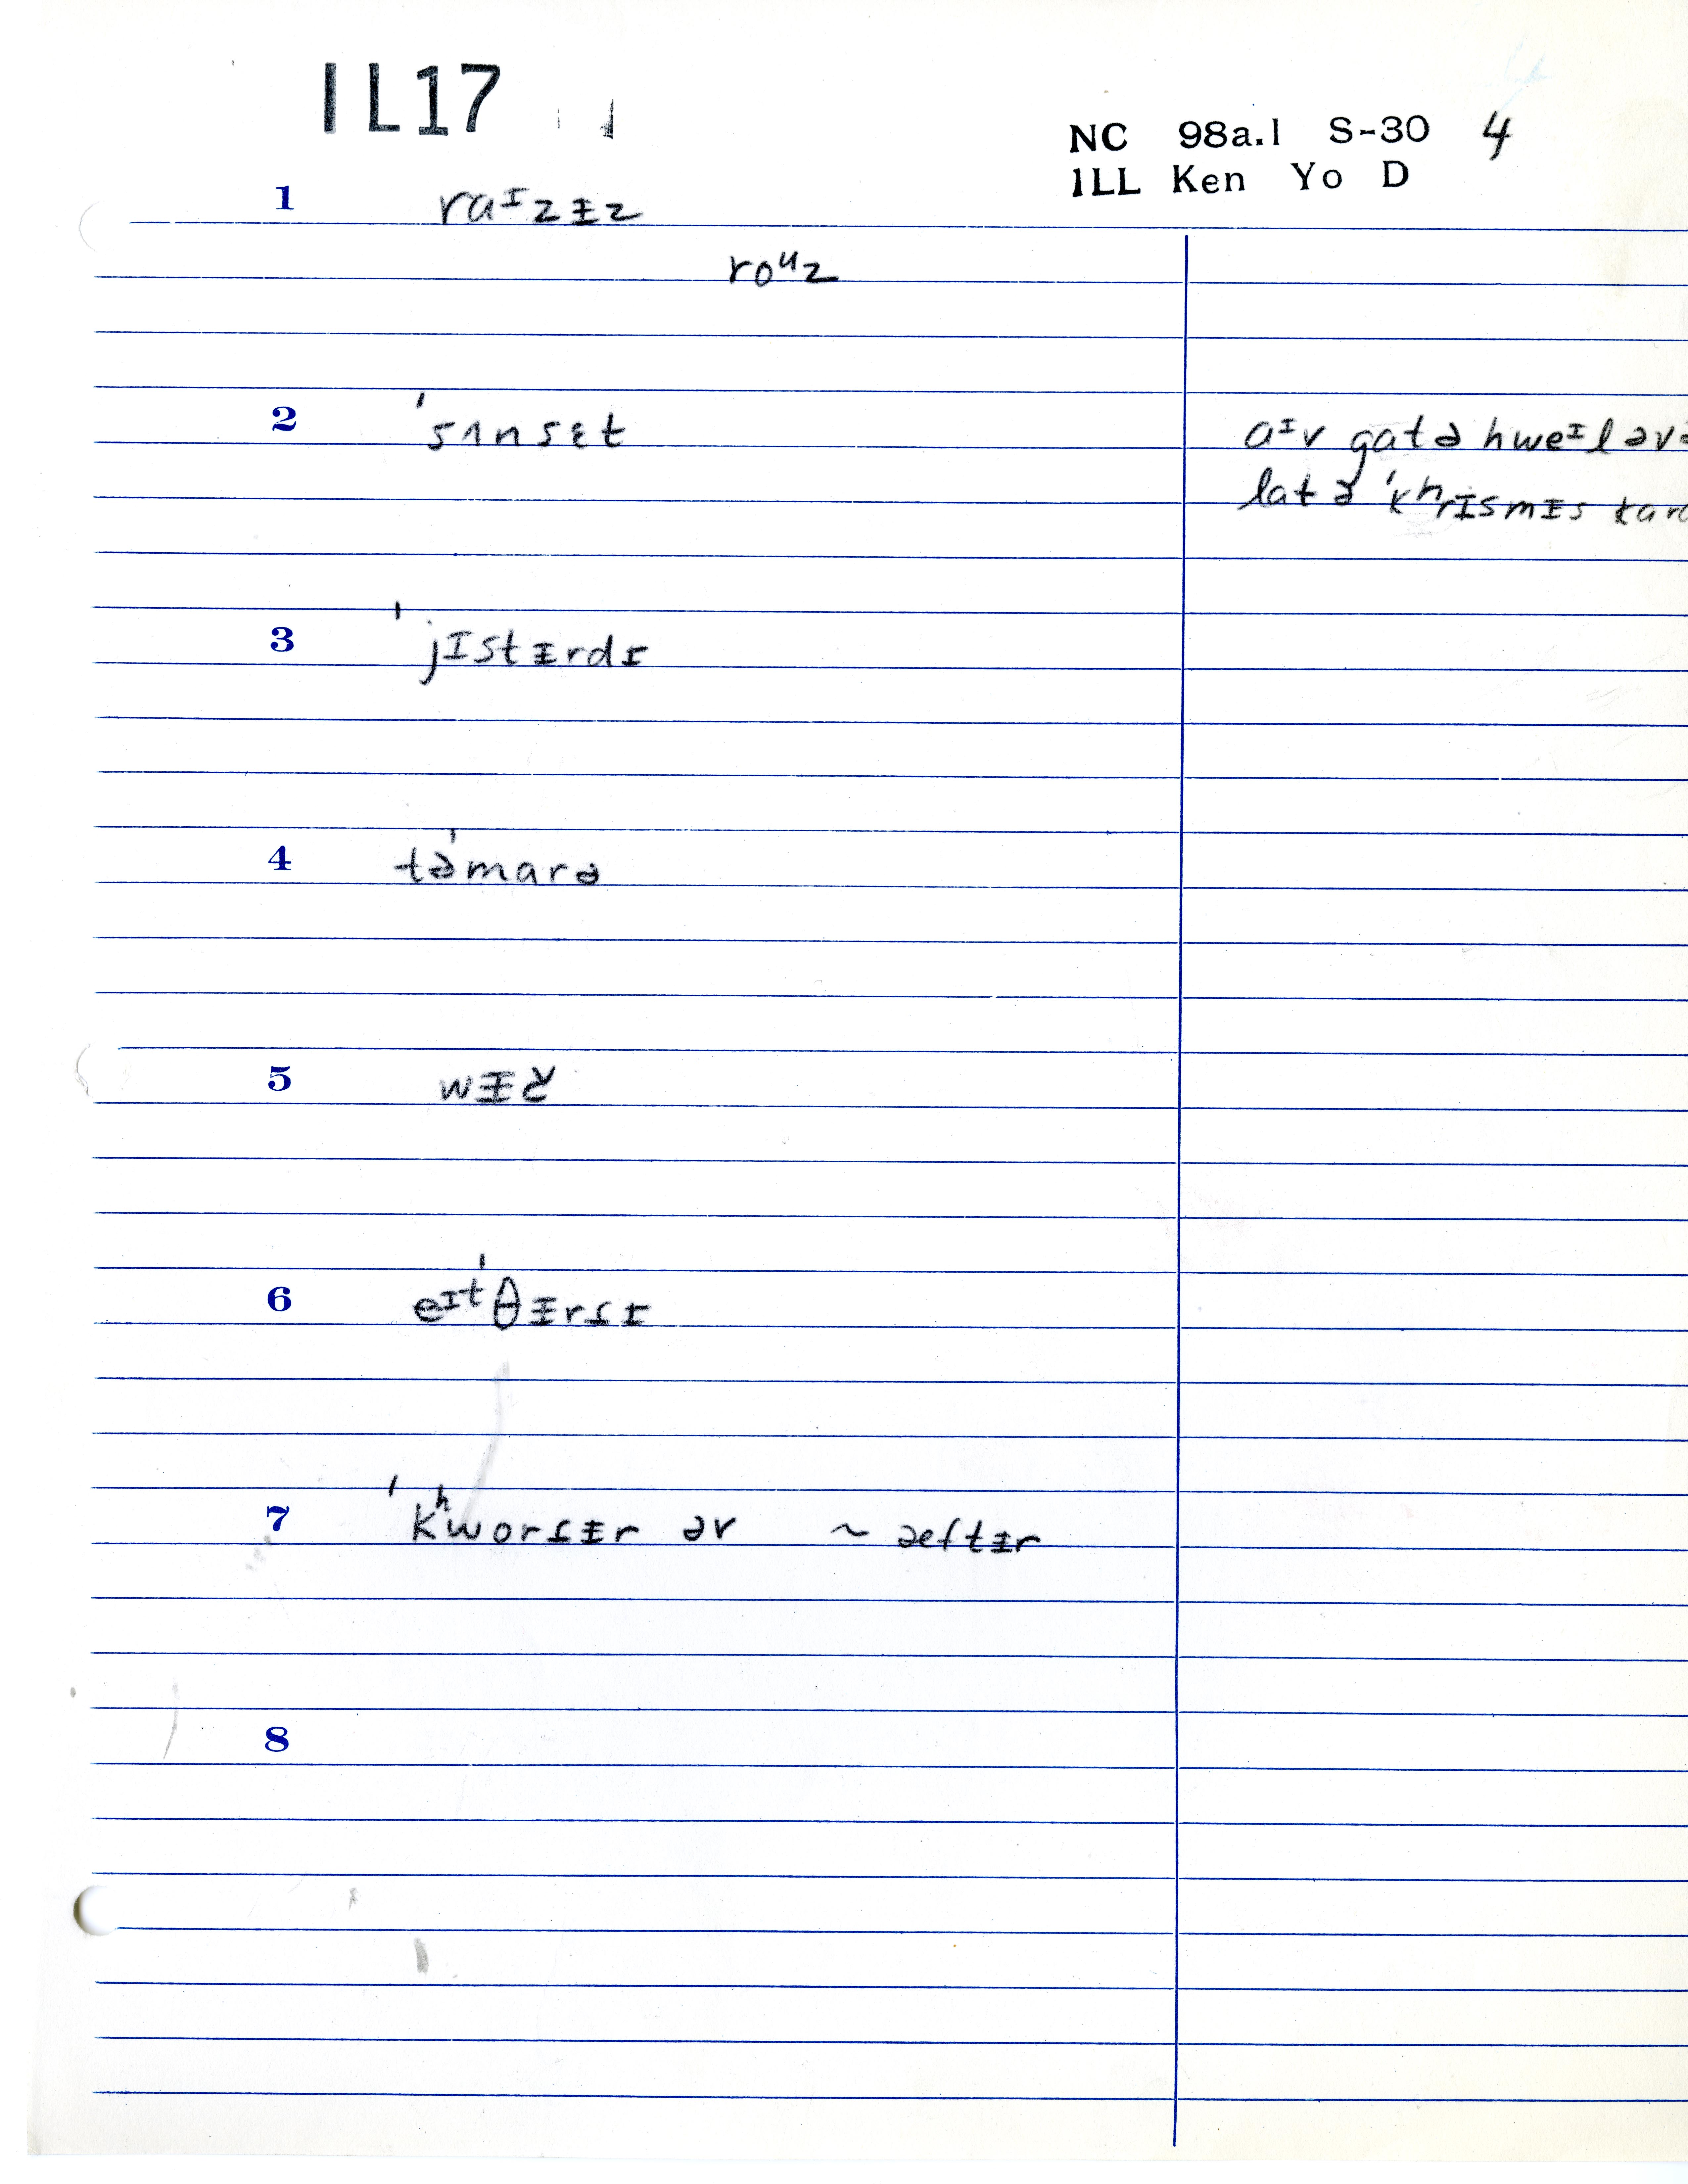 IL17
NC 98a.1 S-30 4
ILL Ken Yo D
1 raᶦzɪ̵z
roᵘz
2 ˈsʌnsɛt
aᶦv gat ə hweᶦl əvə
lat ə ˈkʰrɪsmɪs kard
3 ˈjɪstɪ̵rdɪ
4 təˈmarə
5 wɪ̵
6 eᶦtˈθɪ̵rɾɪ
7 ˈkʰworɾɪ̵r əv ~ æftɪ̵r
8